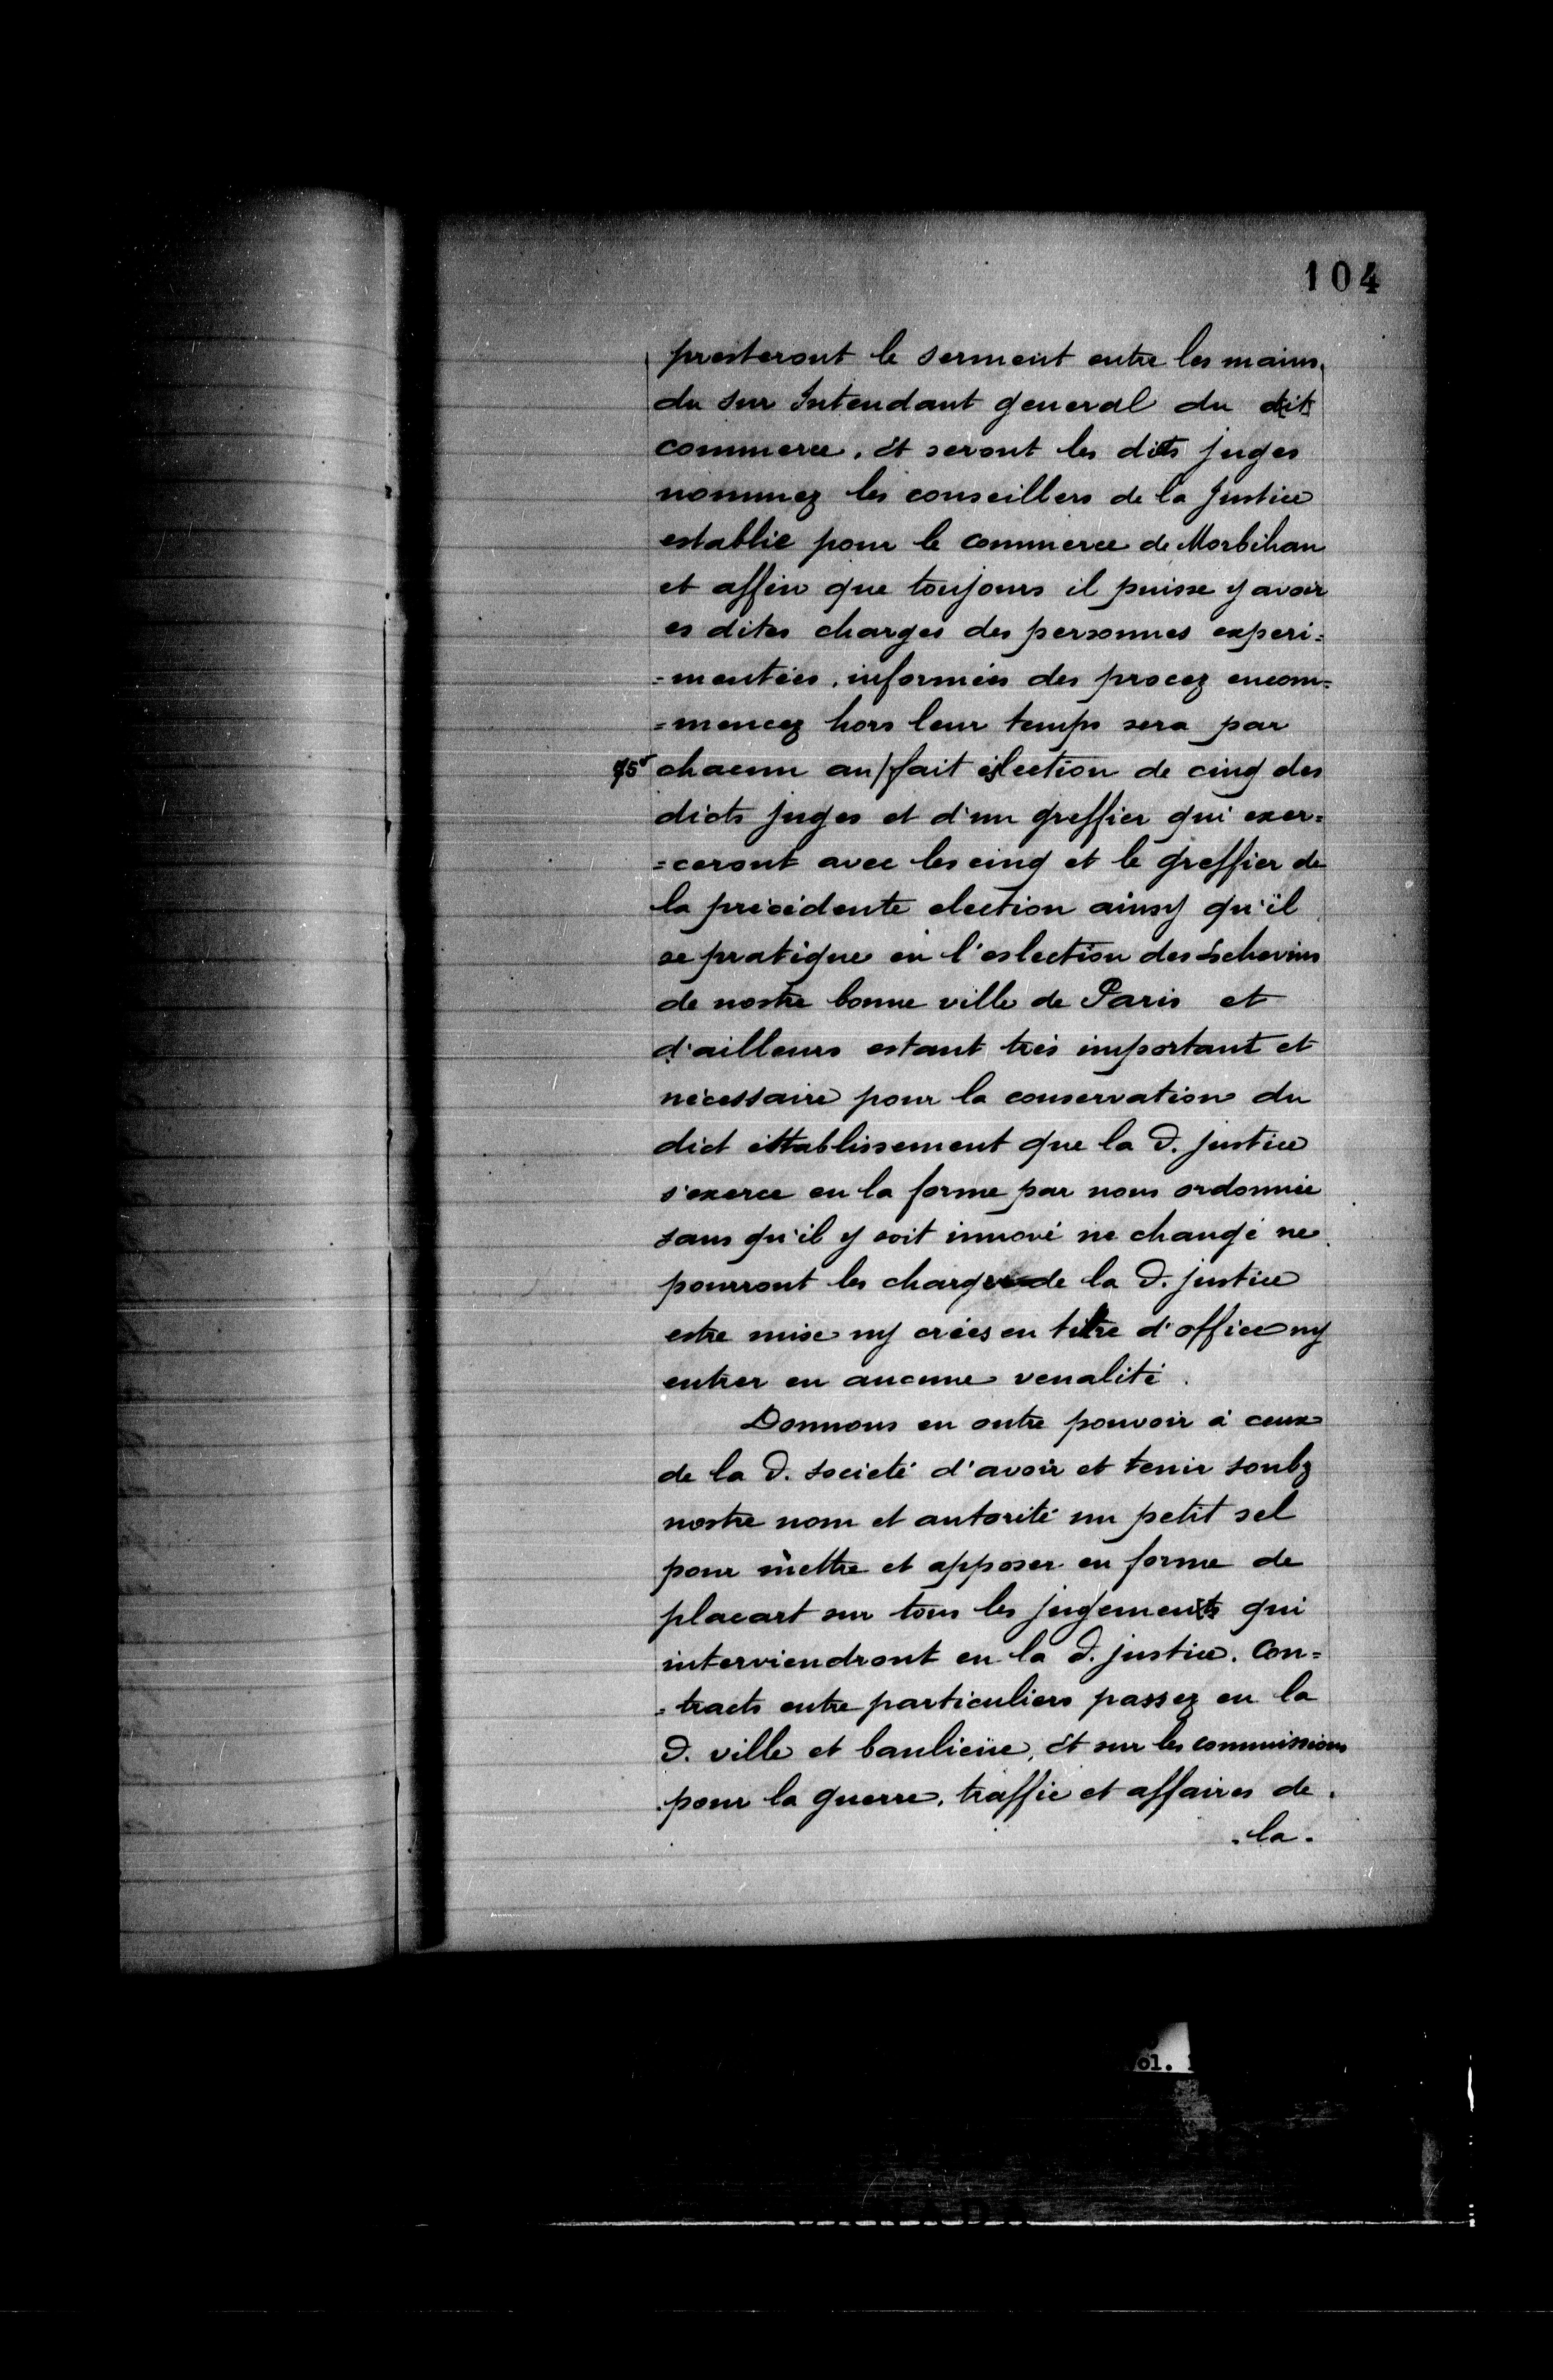 104
presteront le serment entre les mains
du sur Intendant general du dit
commerce. Et seront les dicts juges
nommez les conseillers de la Justice
establie pour le commerce de Morbihan
et affin que toujours il puisse y avoir
es dites charges des personnes experi=
=mentées, informées des procez encom=
=mencez hors leur temps sera par
chacun an/fait eslection de cinq des
dicts juges et d'un greffier qui exer=
=ceront avec les cinq et le greffier de
la précédente election ainsy qu'il
se pratique en l'eslection des Echevins
de nostre bonne ville de Paris et
d'ailleurs estant très important et
nécessaire pour la conservation du
dict établissement que la d. justice
s'exerce en la forme par nous ordonnée
sans qu'il y soit innové ne changé ne
pourront les charges de la d. justice
estre mise ny crées en titre d'office ny
entrer en aucune venalité.
Donnons en outre pouvoir à ceux
de la d. societé d'avoir et tenir soubz
nostre nom et autorité un petit sel
pour mettre et apposer en forme de
placart sur tous les jugements qui
interviendront en la d. justice. Con=
=tracts entre particuliers passez en la
d. ville et banlieüe, Et sur les commissions
pour la guerre, traffic et affaires de
la.
ol.